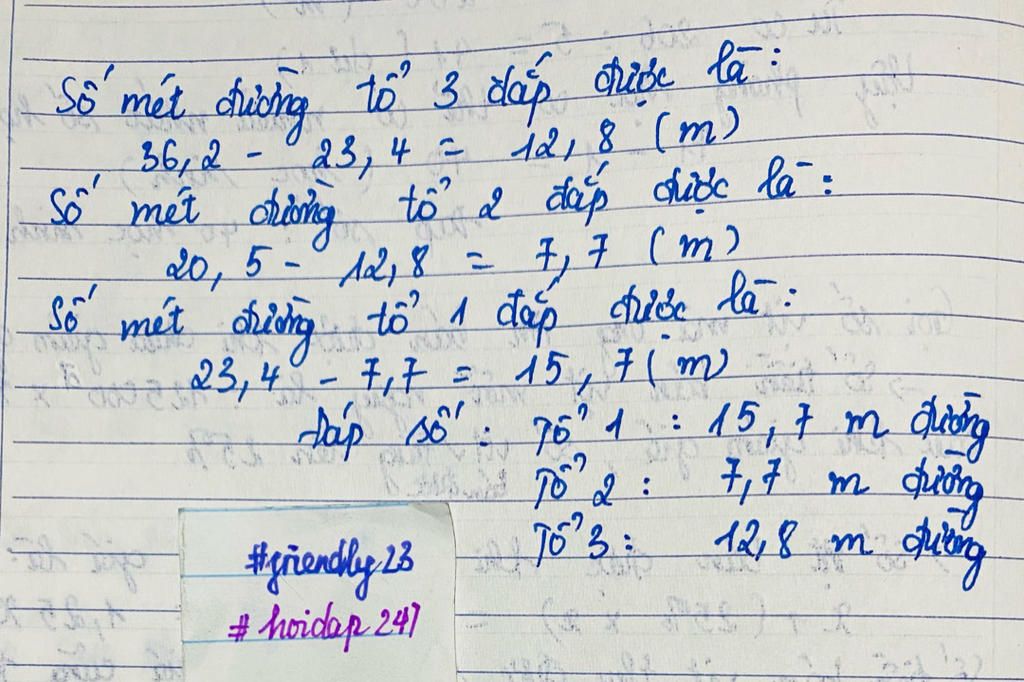 Số mét đường tổ 3 đắp được là:
36,2 - 23,4 = 12,8 (m)
Số mét đường tổ 2 đắp được là:
20,5 - 12,8 = 7,7 (m)
Số mét đường tổ 1 đắp được là:
23,4 - 7,7 = 15,7 (m)
Đáp số: Tổ 1: 15,7 m đường
Tổ 2: 7,7 m đường
Tổ 3: 12,8 m đường
#friendly23
#hoidap247